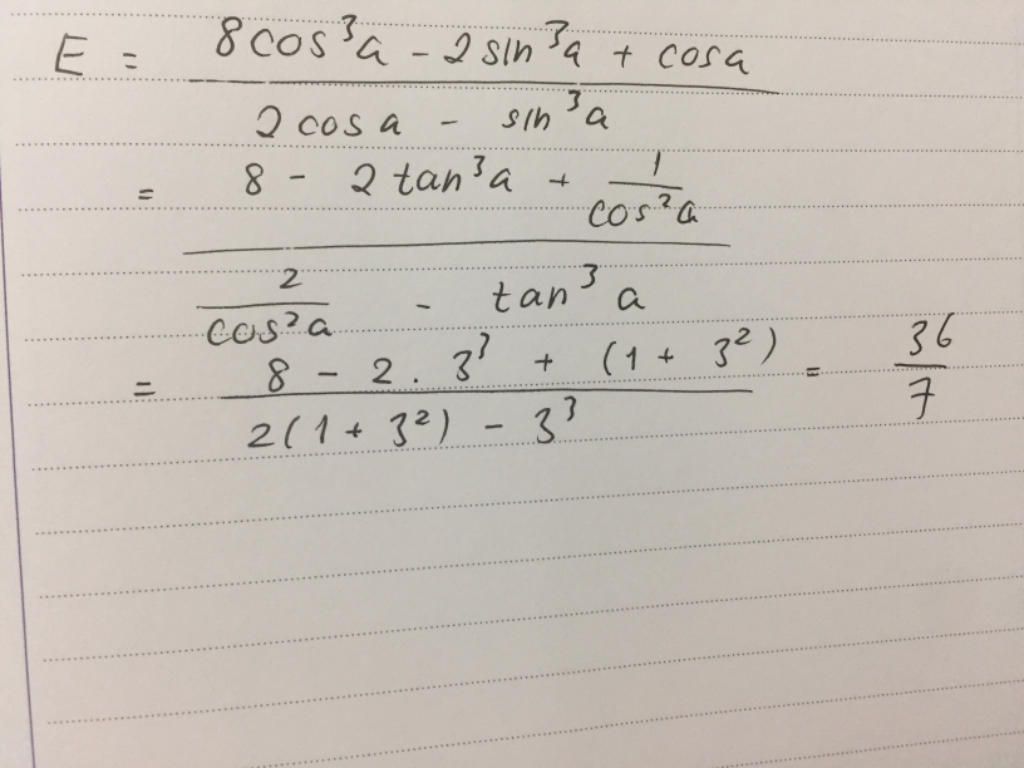 E = \frac{8cos^3a - 2sin^3a + cosa}{2cosa - sin^3a}
= \frac{8 - 2tan^3a + \frac{1}{cos^2a}}{\frac{2}{cos^2a} - tan^3a}
= \frac{8 - 2.3^3 + (1 + 3^2)}{2(1 + 3^2) - 3^3} = \frac{36}{7}